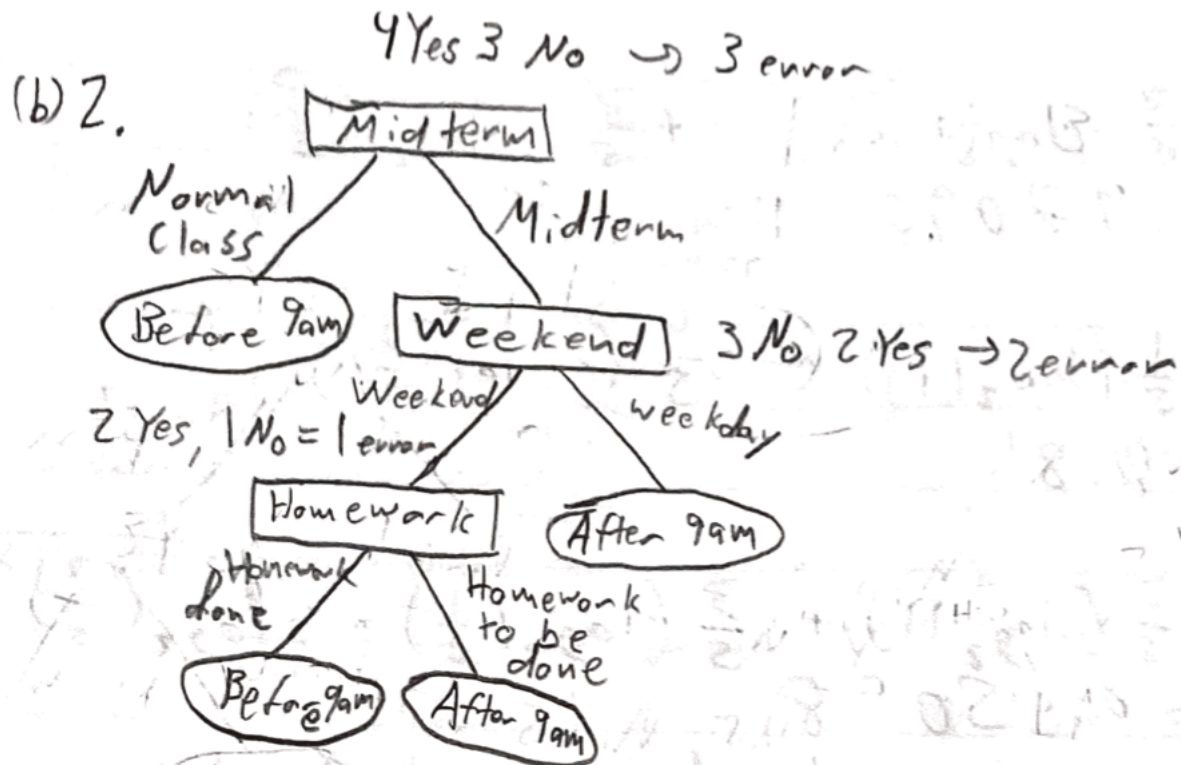 4 Yes 3 No → 3 error
(b) 2.
Midterm
Normal
Class
Midterm
Before 9am
Weekend
3 No, 2 Yes → 2 error
Weekend
weekday
2 Yes, 1 No = 1 error
Homework
After 9am
Homework
done
Homework
to be
done
Before 9am
After 9am